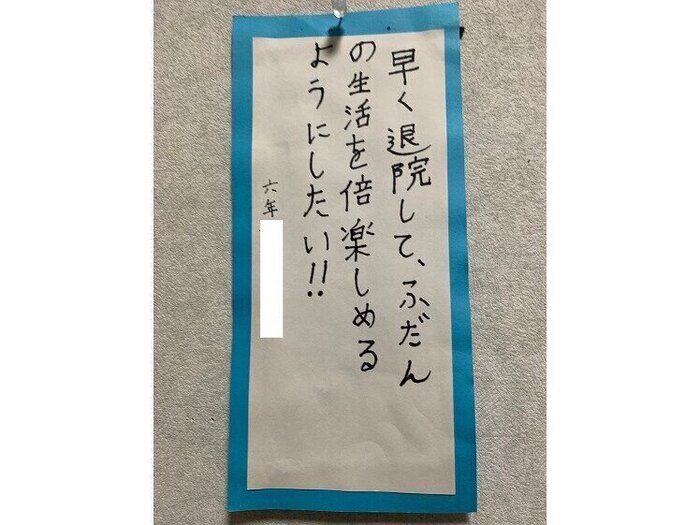 早く退院して、ふだん
の生活を倍楽しめる
ようにしたい!!
六年